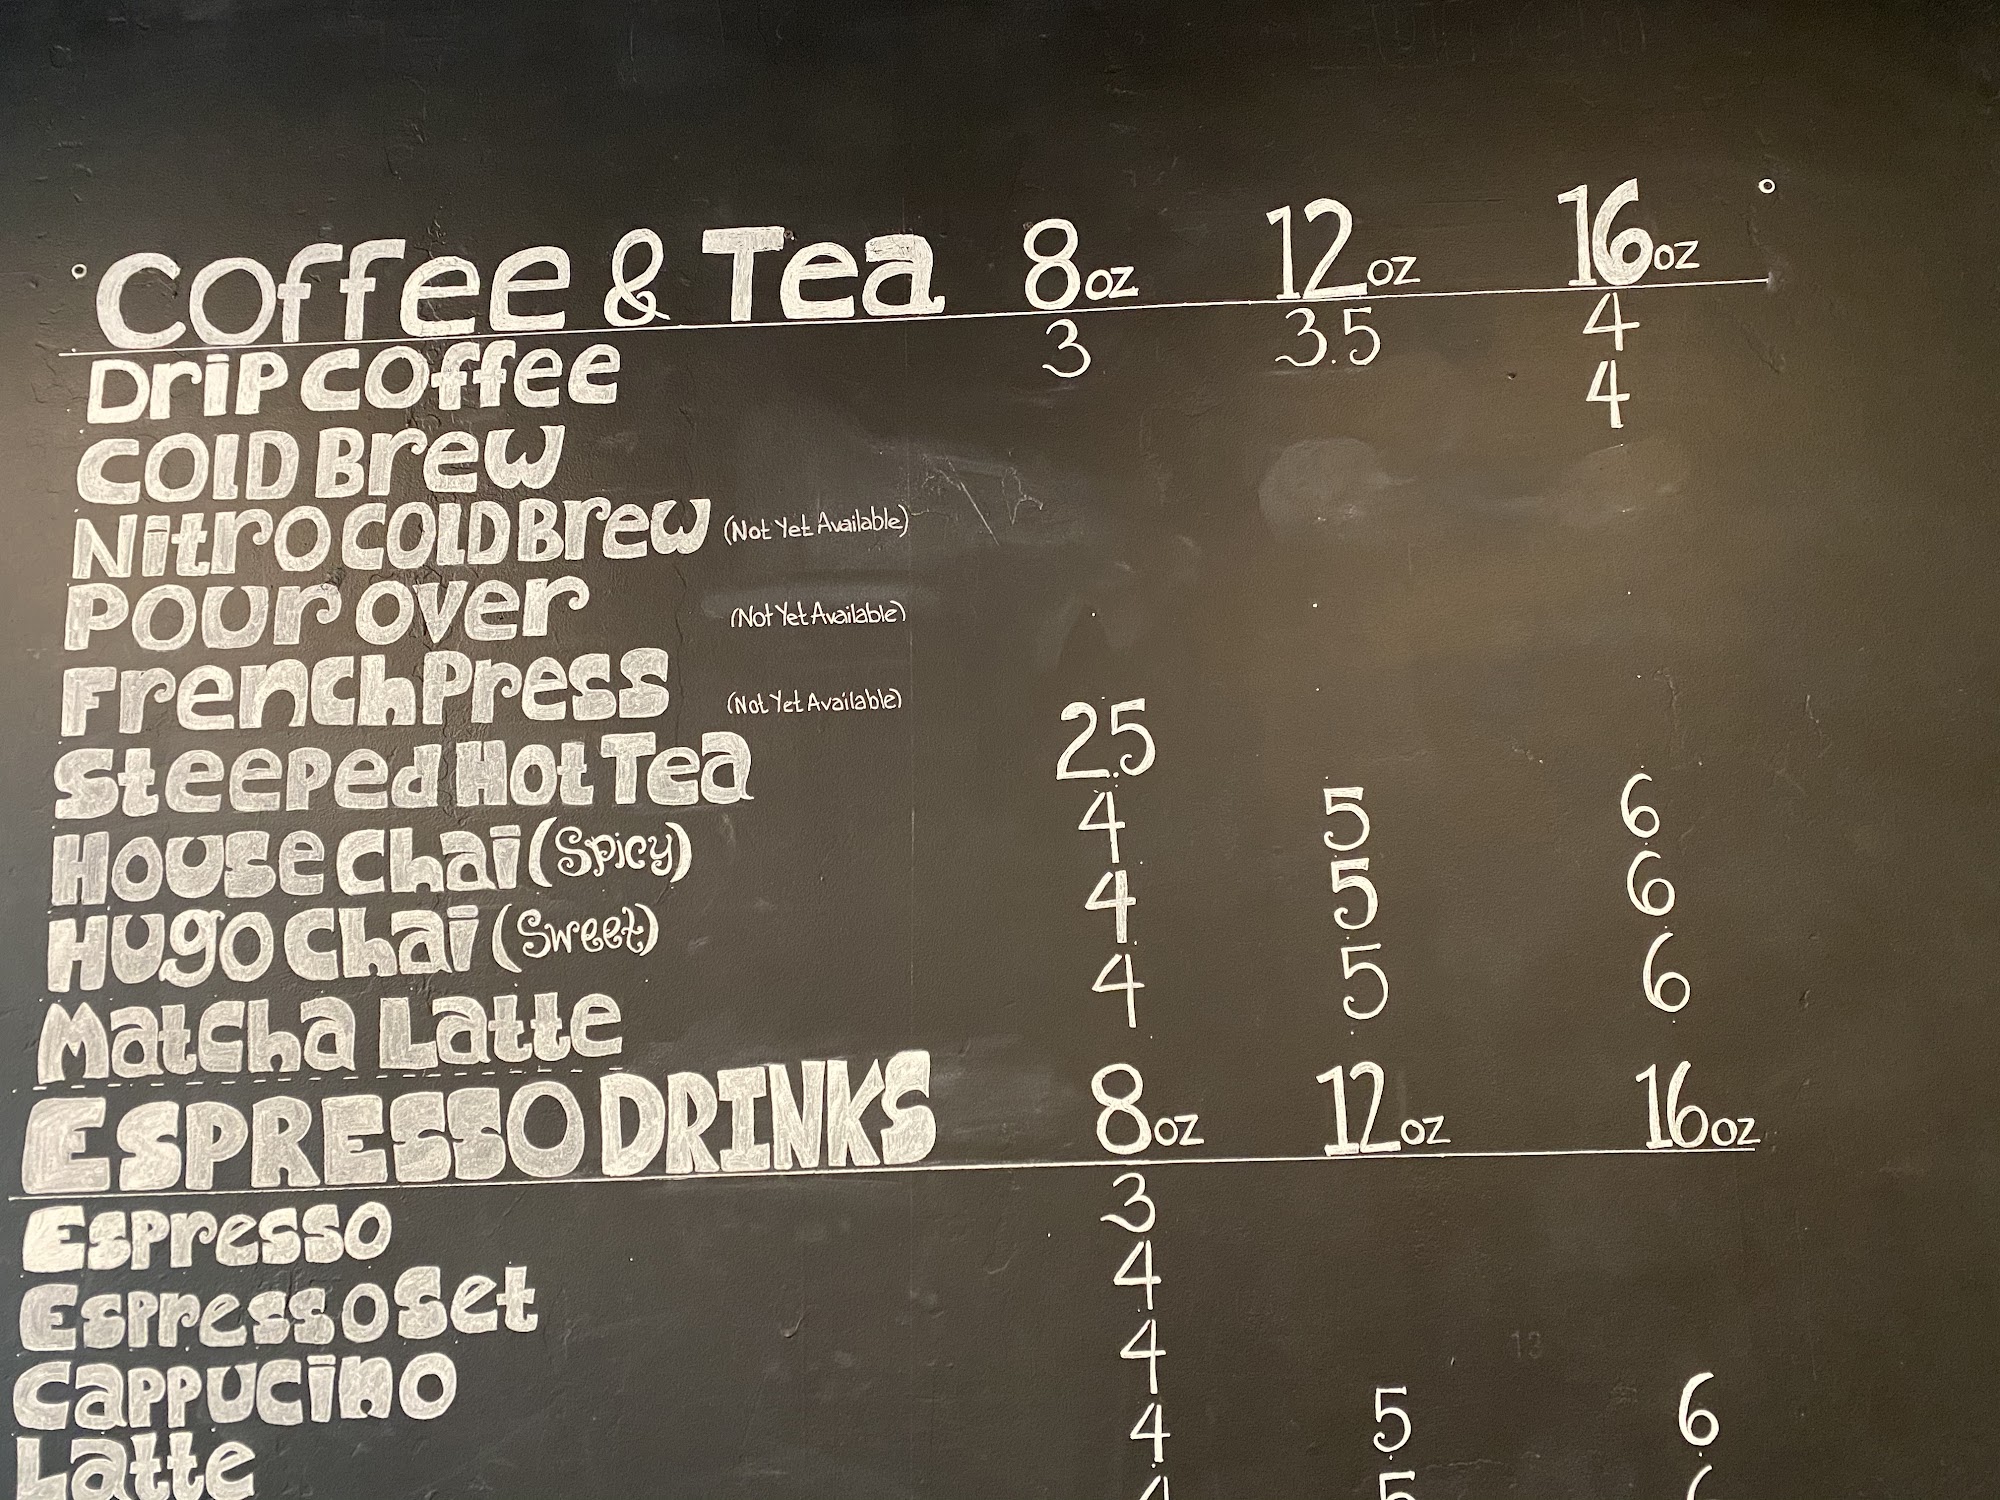 Coffee & Tea 8oz 12oz 16oz
Drip Coffee 3 3.5 4
Cold Brew 4
Nitro Cold Brew (Not Yet Available)
Pour over (Not Yet Available)
French Press (Not Yet Available)
Steeped Hot Tea 2.5
House Chai (Spicy) 4 5 6
Hugo Chai (Sweet) 4 5 6
Matcha Latte 4 5 6
ESPRESSO DRINKS 8oz 12oz 16oz
Espresso 3
Espresso Set 4
Cappucino 4
Latte 4 5 6